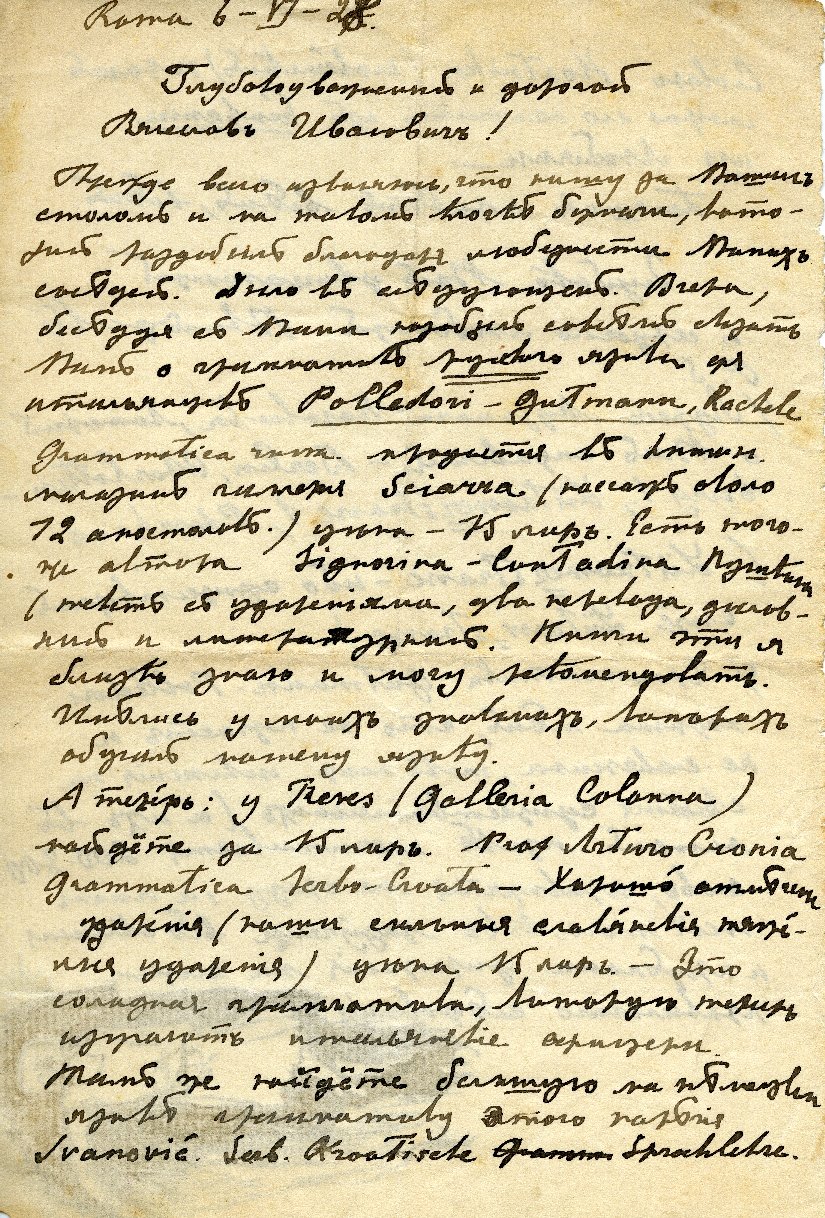 Roma 6 – VI – 28.
Глубокоуважаемый и дорогой
Вячеславъ Ивановичъ!
Прежде всего извиняюсь, что пишу за Вашимъ
столомъ и на такомъ клочкѣ бумаги, кото-
рый раздобылъ благодаря любезности Вашихъ
сосѣдей. Дѣло въ слѣдующемъ. Вчера,
бесѣдуя съ Вами позабылъ совсѣмъ сказать
Вамъ о грамматикѣ русскаго языка для
итальянцевъ Polledori – Gutmann, Rachele
Grammatica russa. продается въ книжн.
магазинѣ галлерея Sciarra (пассажъ около
12 апостоловъ.) цѣна – 15 лиръ. Есть того-
же автора Signorina – Contadina Пушкина
(текстъ съ удареніями, два перевода, дослов-
ный и литературный. Книги эти я
близко знаю и могу рекомендовать.
Имѣлись у моихъ знакомыхъ, которыхъ
обучалъ нашему языку.
А теперь: у Treves (Galleria Colonna)
найдёте за 15 лиръ. Prof Arturo Cronia
Grammatica Serbo-Croata – Хорошо́ отмѣчены
ударе́нія (наши сильныя слова́нскія
ударенія) цѣна 15 лиръ. – Это
солидная грамматика, которую теперь
изучаютъ итальянскіе офицеры.
Тамъ же найдёте большую на нѣмецкомъ
языкѣ грамматику этого нарѣчія
Ivanović. Serb. Kroatische Sprachlehre.